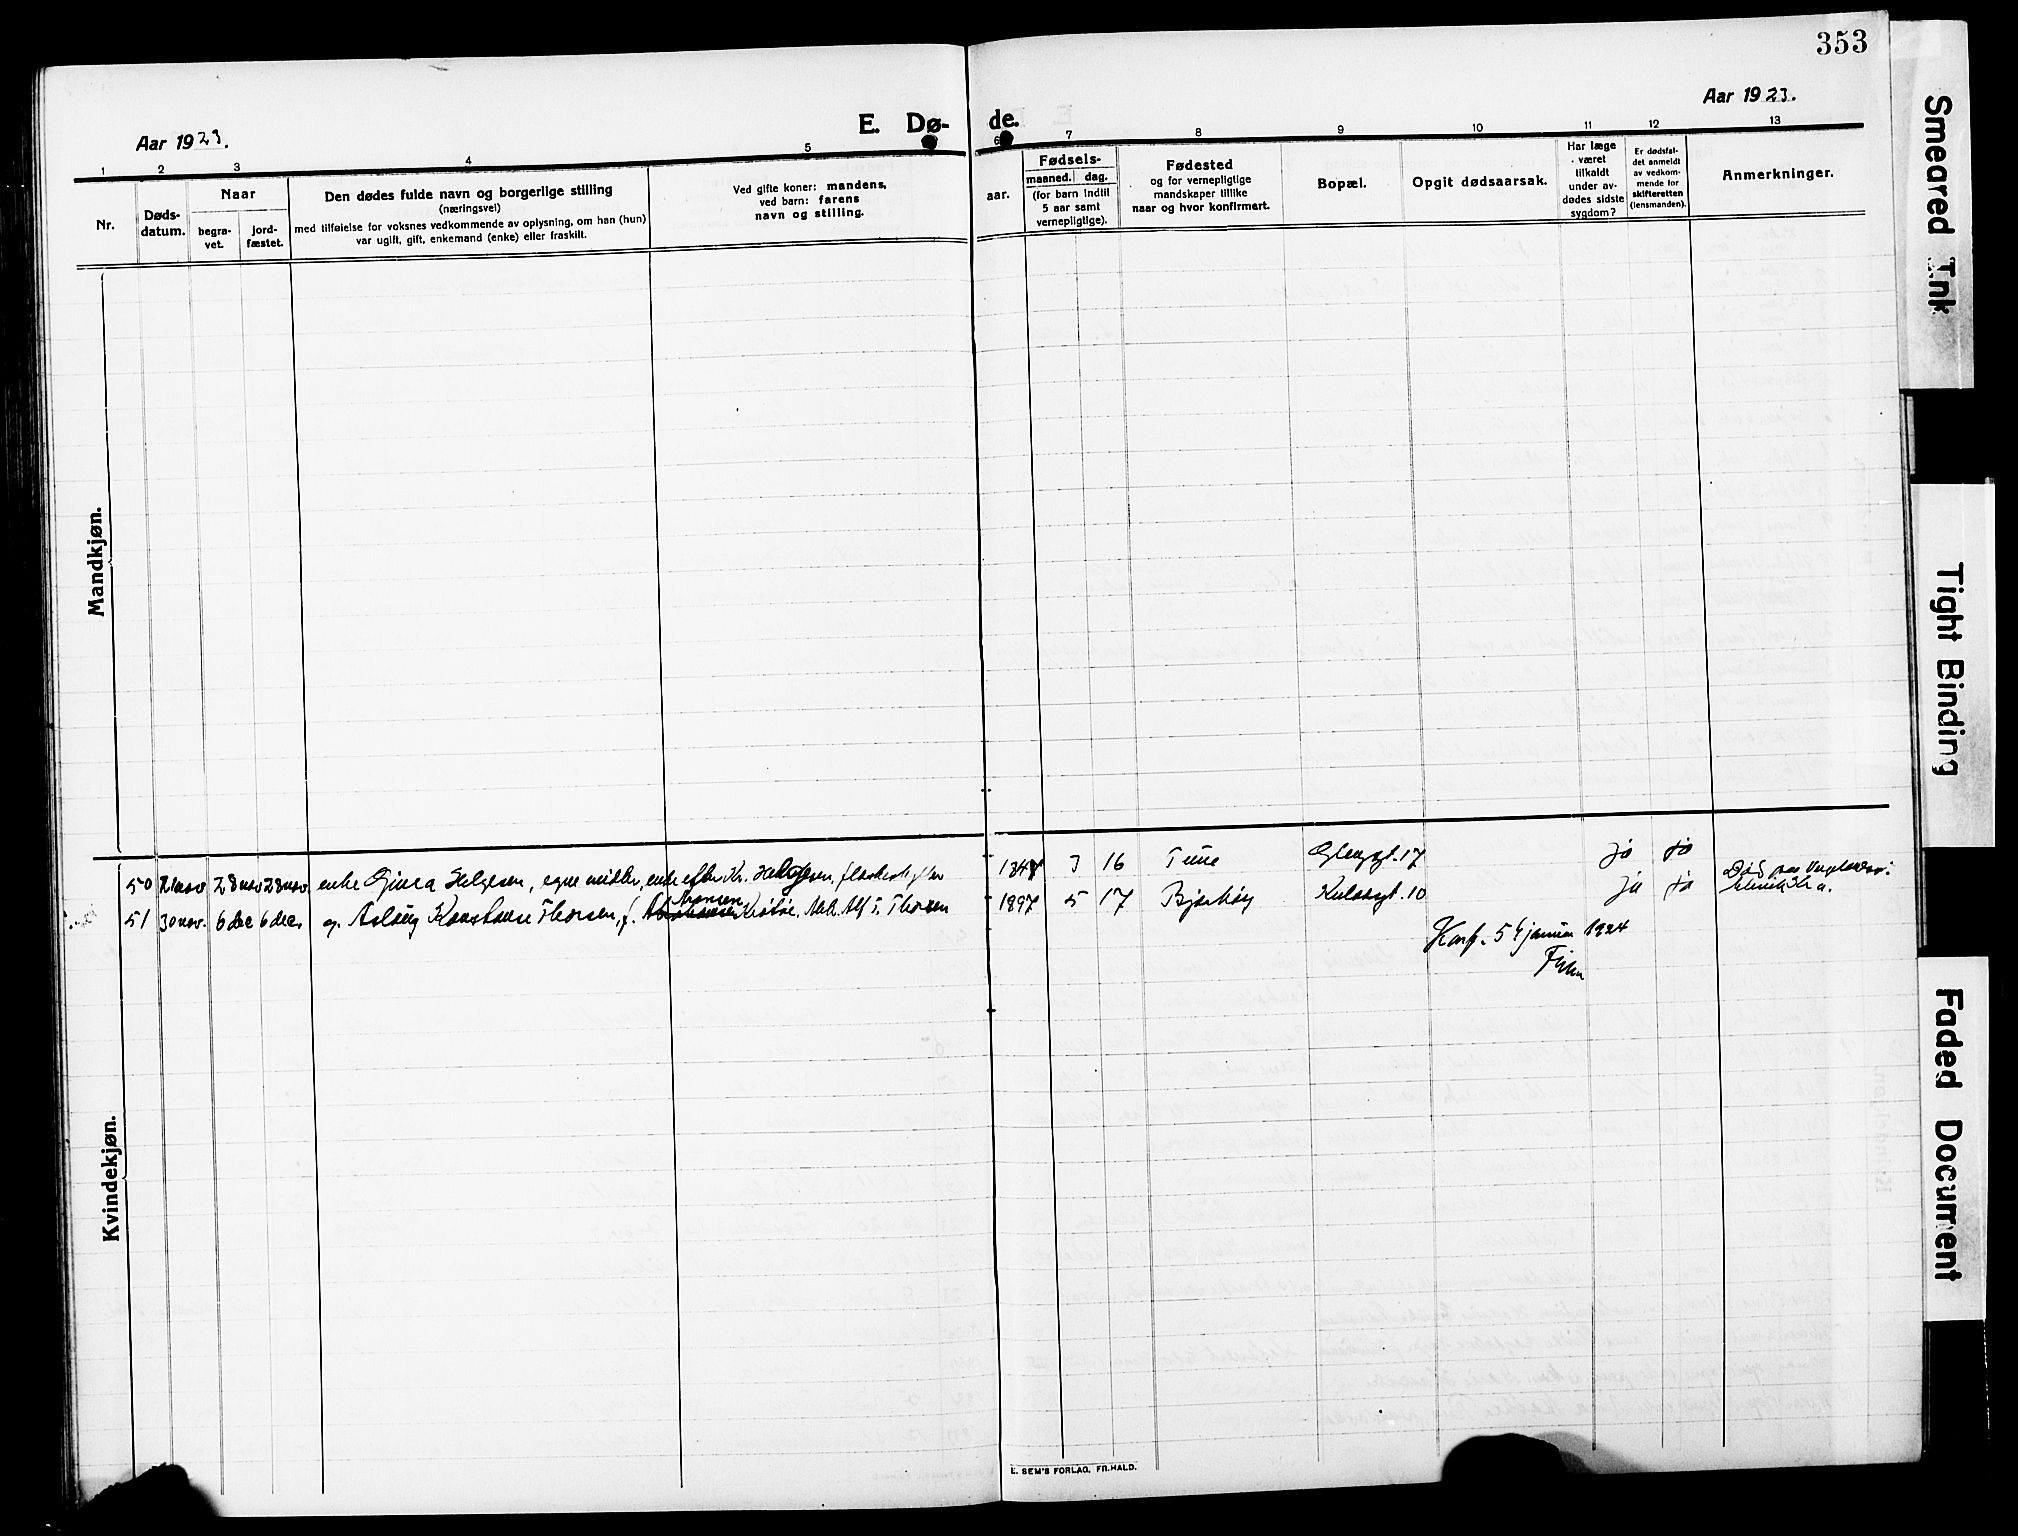 353
Aar 1923.
E. Dø-
de.
Aar 1923.
1 2 3 4 5
6 7 8 9 10 11 12 13
Nr.
Døds-
datum.
Naar
begra-
vet.
jord-
fæstet.
Den dødes fulde navn og borgerlige stilling
(næringsvei)
med tilføielse for voksnes vedkommende av oplysning, om han (hun)
var ugift, gift, enkemand (enke) eller fraskilt.
Ved gifte koner: mandens,
ved barn: farens
navn og stilling.
aar.
Fødsels-
maaned. dag.
(for barn indtil
5 aar samt
vernepligtige).
Fødested
og for vernepligtige
mandskaper tillike
naar og hvor konfirmert.
Bopæl.
Opgit dødsaarsak.
Har læge
været
tilkaldt
under av-
dødes sidste
sygdom?
Er dødsfal-
det anmeldt
av vedkom-
mende for
skifteretten
(lensmanden).
Anmerkninger.
Mandkjøn.
Kvindekjøn.
50 21 nov 28 nov 28 nov enke Gjina Helgesen, egne midler, enke efter Chr. Helgesen, 1847 3 16 Tune Glenggt. 17 ja ja
51 30 nov. 6 dec 6 dec g. Aslaug Konstanse Thorsen, f. Alf T. Thorsen 1897 5 17 Bjarkøy Kulaasgt. 10 ja ja Død paa
Konf. 5/1 januar 1924
E. SEM'S FORLAG, FR.HALD.
Smeared Ink
Tight Binding
Faded Document